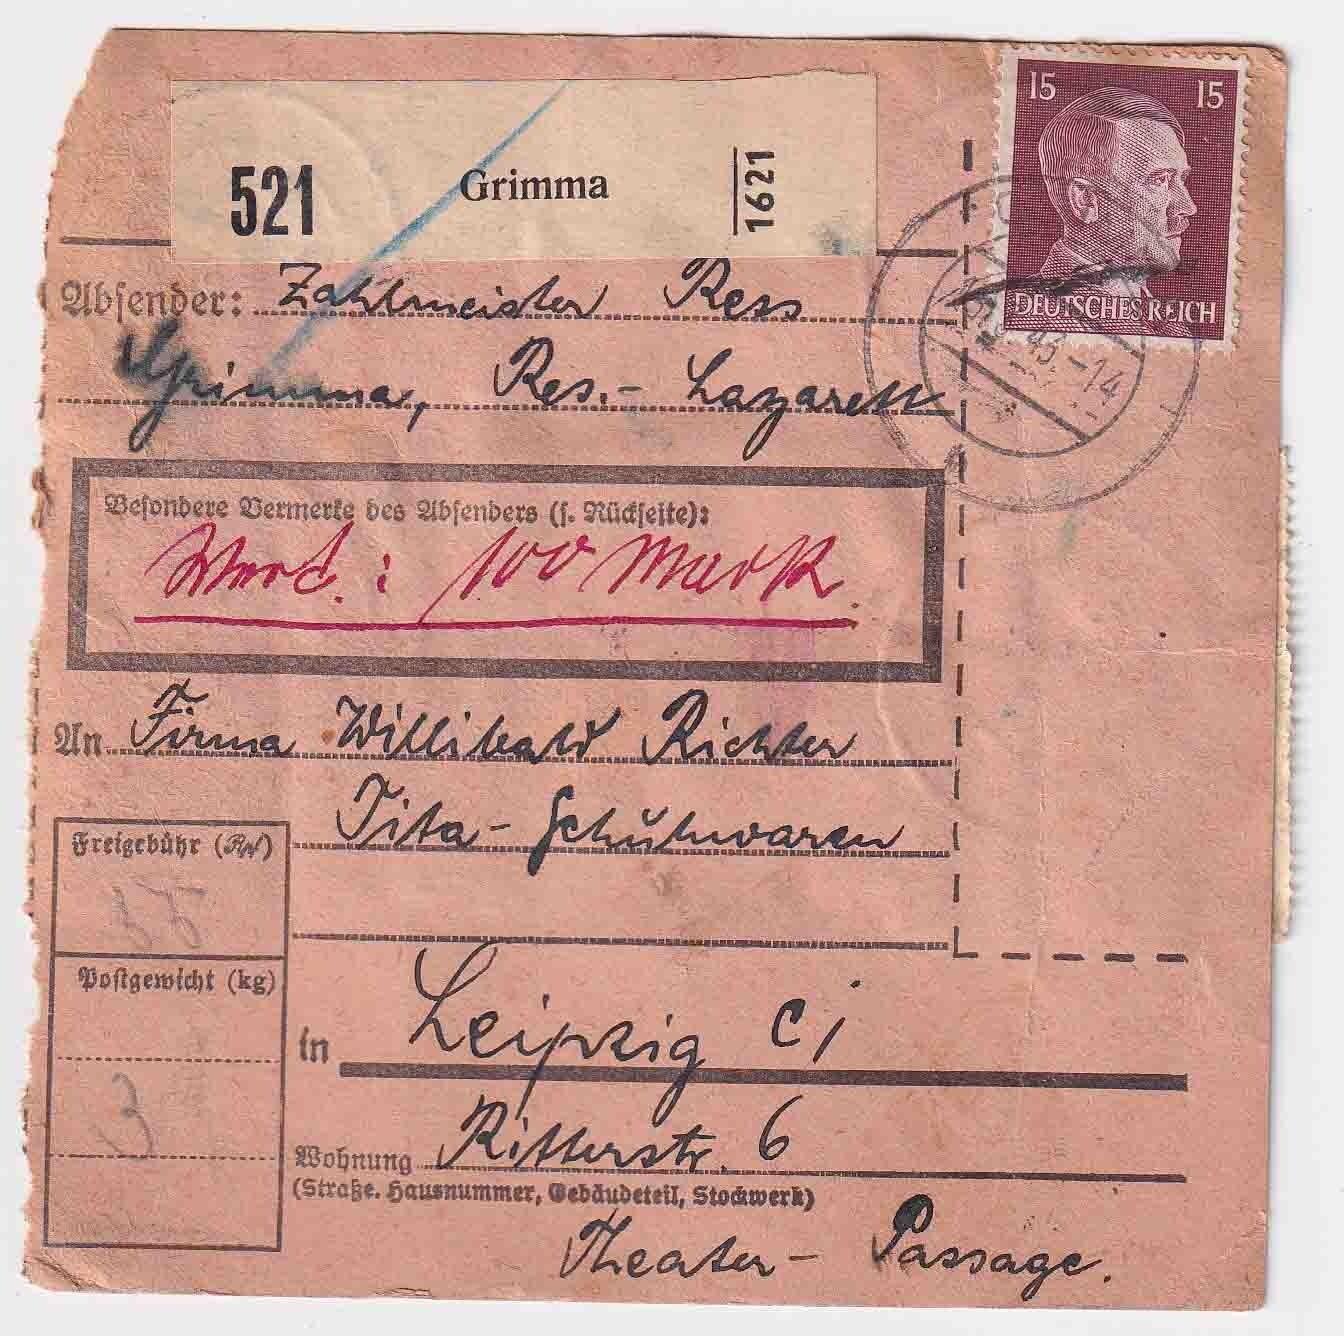 15 15
DEUTSCHES REICH
521 Grimma 1621
43-14
Absender: Zahlmeister Ress
Grimma, Res.- Lazarett
Besondere Vermerke des Absenders (s. Rückseite):
Wert: 100 Mark.
An Firma Willibald Richter
Tita-Schuhwaren
Freigebühr (RM)
Postgewicht (kg)
3
in Leipzig C 1
Wohnung Ritterstr. 6
(Straße, Hausnummer, Gebäudeteil, Stockwerk)
Theater-Passage.